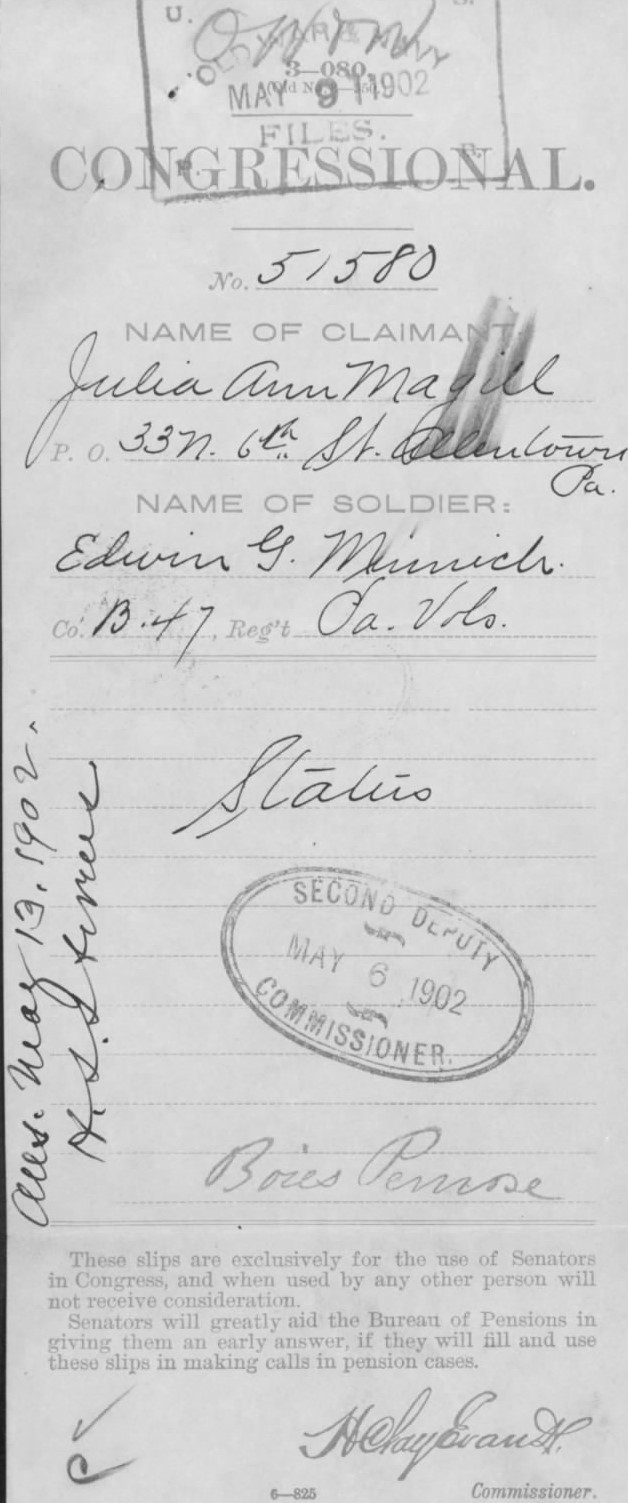 U. S.
O W & N
OLD WAR & NAVY
3—080.
MAY 9 1902
FILES.
P. P.
CONGRESSIONAL.
No. 51580
NAME OF CLAIMANT
Julia Ann Magill
P. O. 33 N. 6th St. Allentown
Pa.
NAME OF SOLDIER:
Edwin G. Minnich.
Co. B. 47, Reg't Pa. Vols.
Status
SECOND DEPUTY
MAY 6 1902
COMMISSIONER.
Ans. May 13, 1902.
Boies Penrose
These slips are exclusively for the use of Senators
in Congress, and when used by any other person will
not receive consideration.
Senators will greatly aid the Bureau of Pensions in
giving them an early answer, if they will fill and use
these slips in making calls in pension cases.
H Clay Evans
6—825 Commissioner.